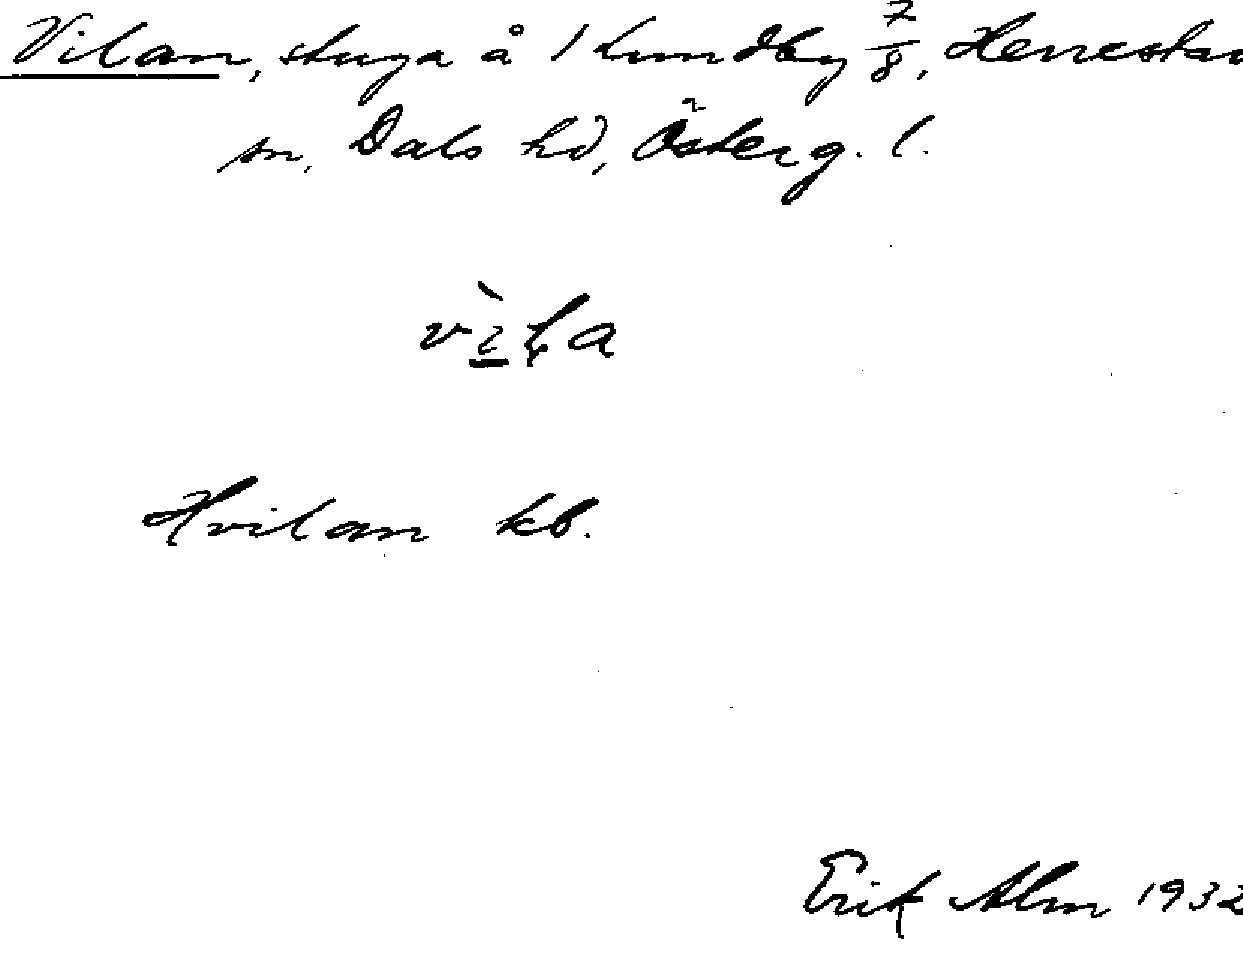 Vilan, stuga å 1 Lundby 7/8, Herrestad
sn, Dals hd, Österg. l.
Hvilan kb.
Erik Alm 1932